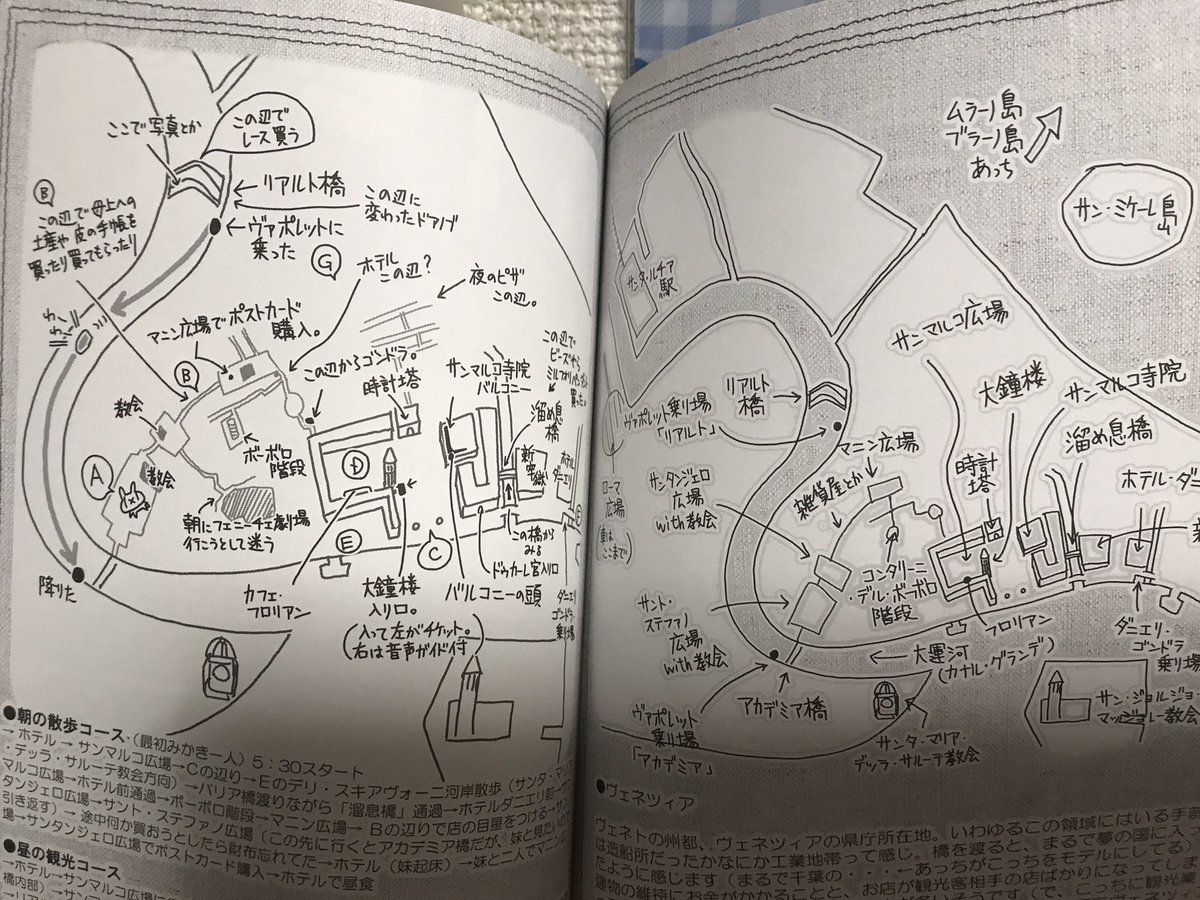 ここで写真とか
この辺で
レース買う
B
この辺で母上への
土産や皮の手帳を
買ったり買ってもらったり
リアルト橋
この辺に
変わったドアノブ
ヴァポレットに
乗った
G
ホテル
この辺?
夜のピザ
この辺。
マニン広場でポストカード
購入。
この辺からゴンドラ。
時計塔
サンマルコ寺院
バルコニー
この辺で
買った。
溜め息
橋
B
教会
ボーボロ
階段
A
教会
D
新
牢
獄
ホテル
ダニエリ
朝にフェニーチェ劇場
行こうとして迷う
E
C
この橋から
みる
ドゥカーレ宮入り口
降りた
カフェ・
フロリアン
大鐘楼
入り口。
(入って左がチケット。
右は音声ガイド付)
バルコニーの頭
ダニエリ
ゴンドラ
乗り場
●朝の散歩コース・(最初みかき一人)5:30スタート
→ホテル→サンマルコ広場→Cの辺り→Eのデリ・スキアヴォーニ河岸散歩(サンタ・マリア
・デッラ・サルーテ教会方向)→パリア橋渡りながら「溜息橋」通過→ホテルダニエリ前→サン
マルコ広場→ホテル前通過→ボーボロ階段→マニン広場→Bの辺りで店の目星をつける→サン
タンジェロ広場→サント・ステファン広場(この先に行くとアカデミア橋だが、妹と見たいので
引き返す)→途中何か買おうとしたら財布忘れてた→ホテル(妹起床)→妹と二人でマニン広
場→サンタンジェロ広場でポストカード購入→ホテルで昼食
●昼の観光コース
→ホテル→サンマルコ広場
橋内部)
ムラーノ島
ブラーノ島
あっち
サン・ミケーレ島
サンタ・ルチア
駅
サンマルコ広場
大鐘楼
サンマルコ寺院
リアルト
橋
溜め息橋
ヴァポレット乗り場
「リアルト」
マニン広場
時計
塔
ホテル・ダニ
ローマ
広場
(車は
ここまで)
サンタンジェロ
広場
with教会
雑貨屋とか
コンタリーニ
・デル・ボーボロ
階段
フロリアン
サント・
ステファノ
広場
with教会
大運河
(カナル・グランデ)
ダニエリ・
ゴンドラ
乗り場
ヴァポレット
乗り場
「アカデミア」
アカデミア橋
サンタ・マリア・
デッラ・サルーテ教会
サン・ジョルジョ
マッジョーレ教会
●ヴェネツィア
ヴェネトの州都、ヴェネツィアの県庁所在地。いわゆるこの領域にはいる手前
は造船所だったかなにか工業地帯って感じ。橋を渡ると、まるで夢の国に入っ
たように感じます(まるで千葉の・・・←あっちがこっちをモデルにしてる)
建物の維持にお金がかかることと、お店が観光客相手の店ばかりになってしま